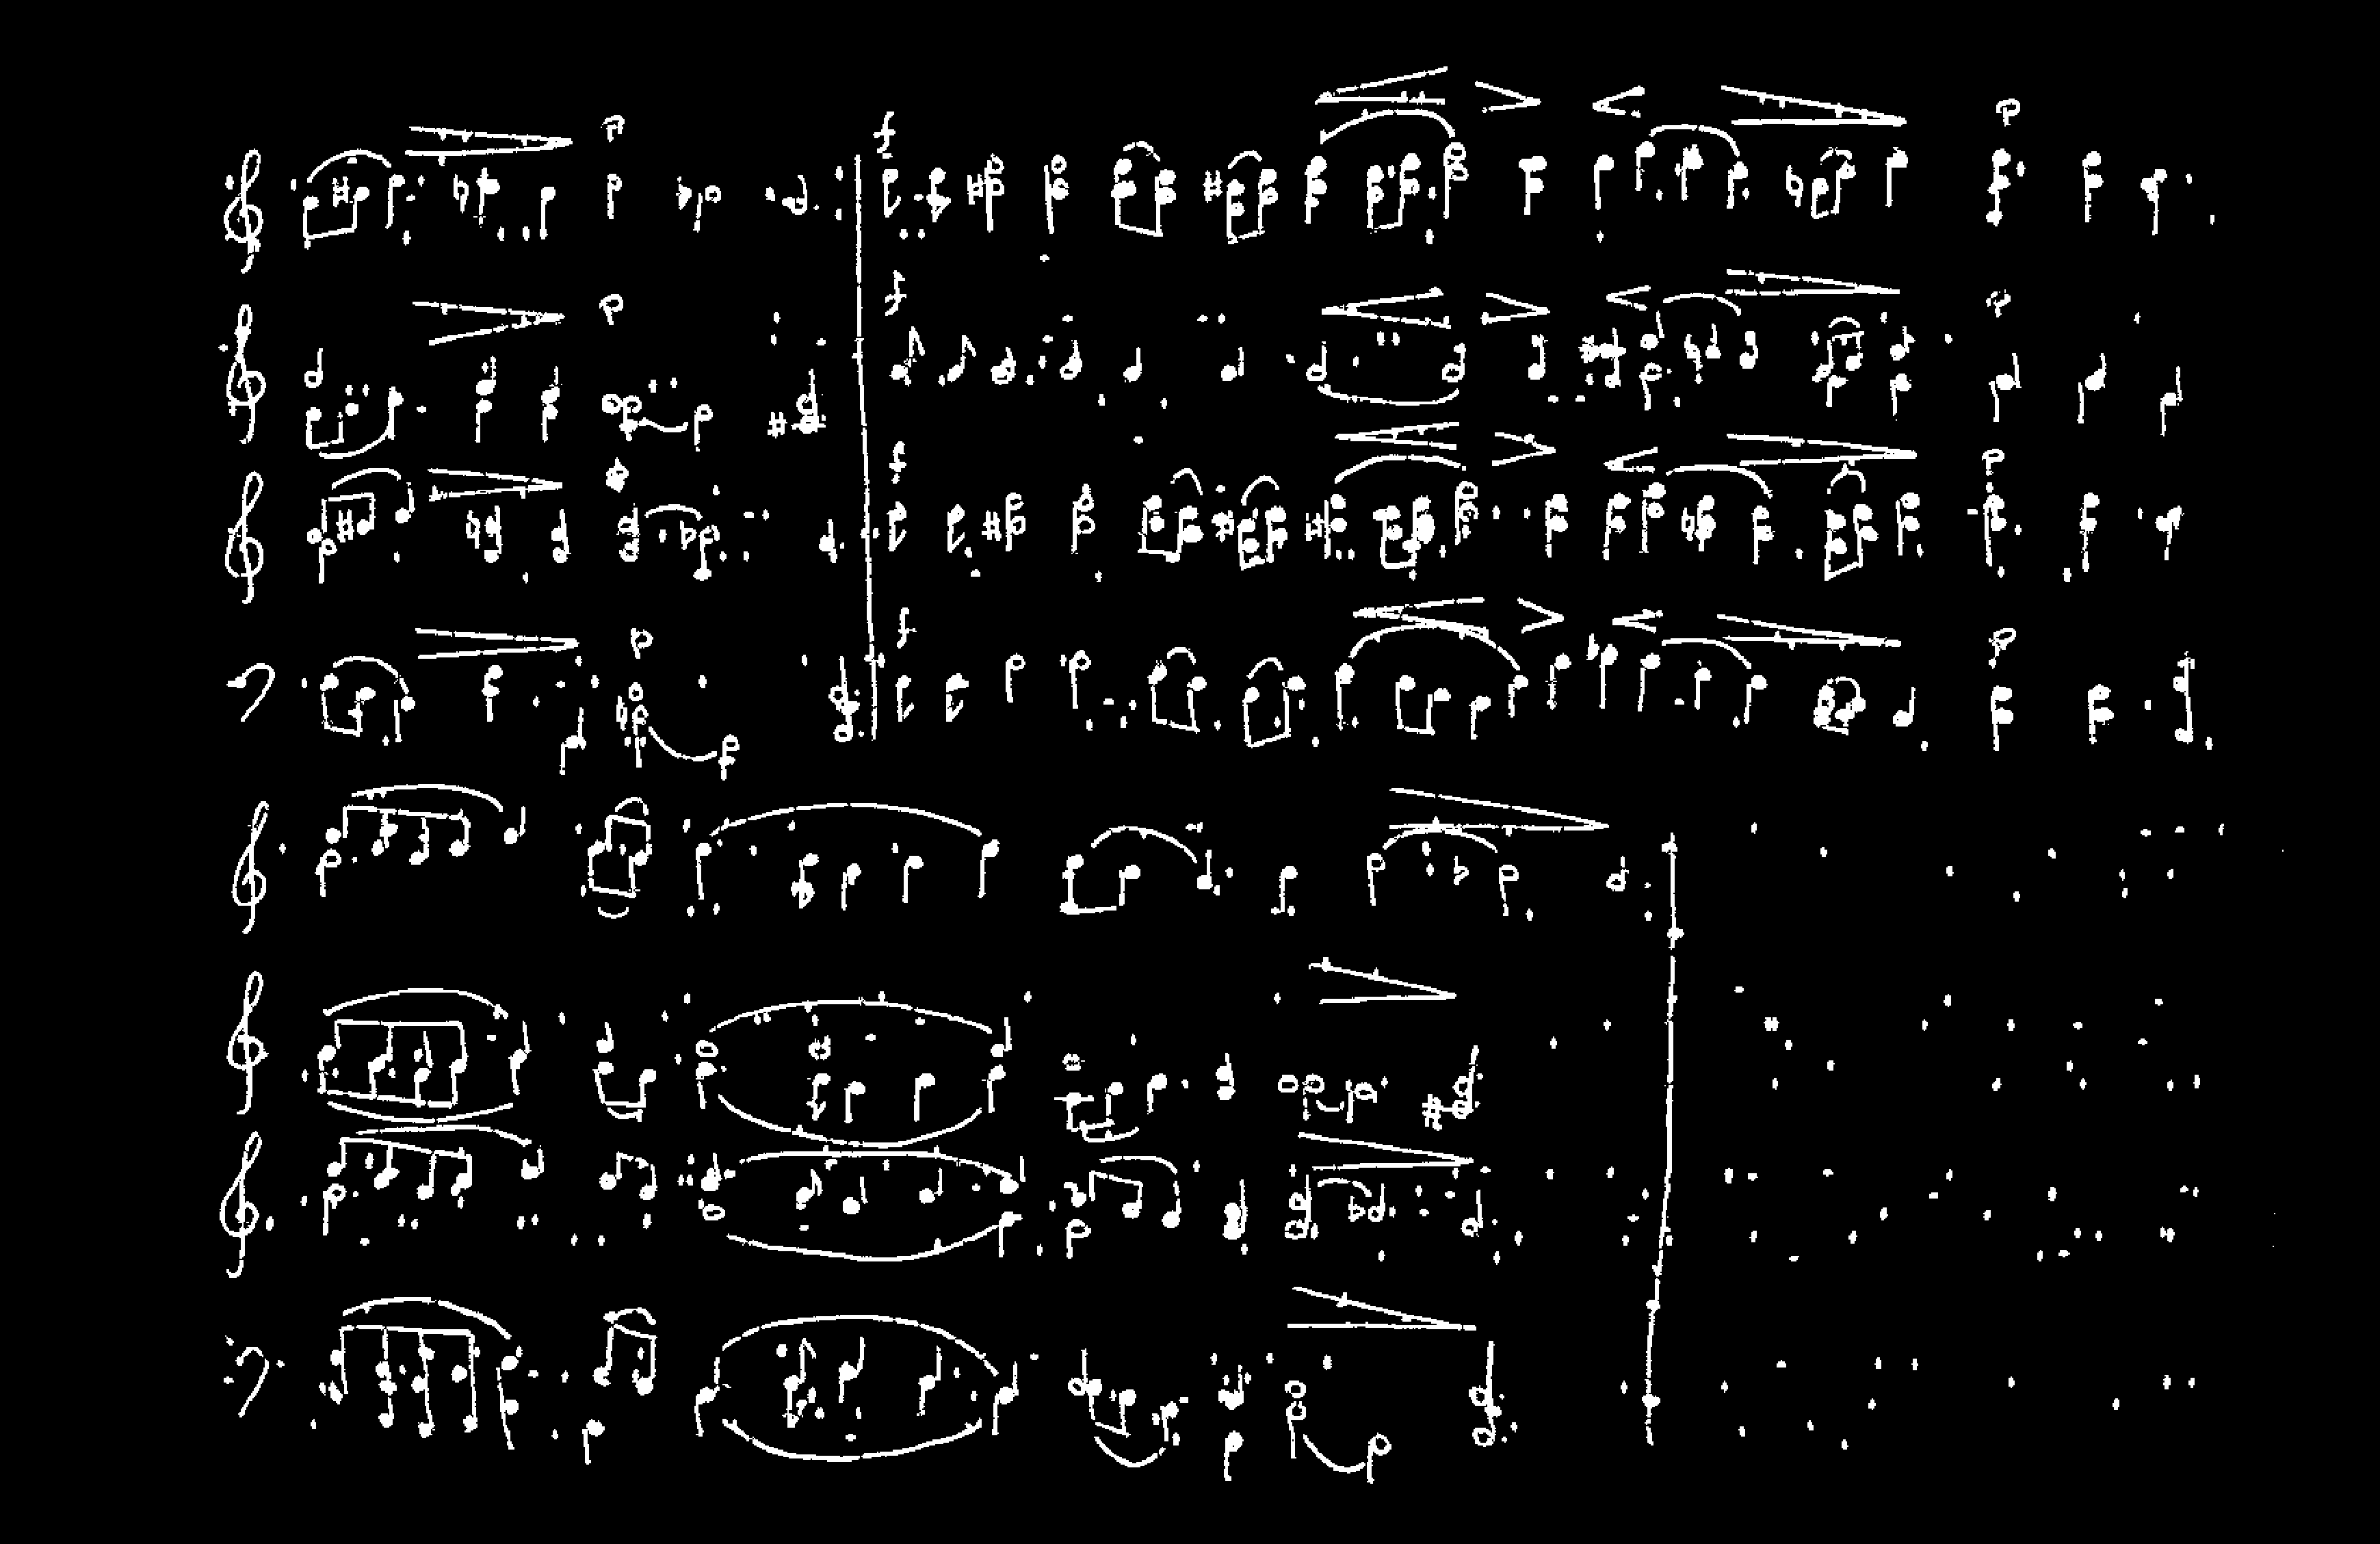 p f p
p f p
f p
p f p